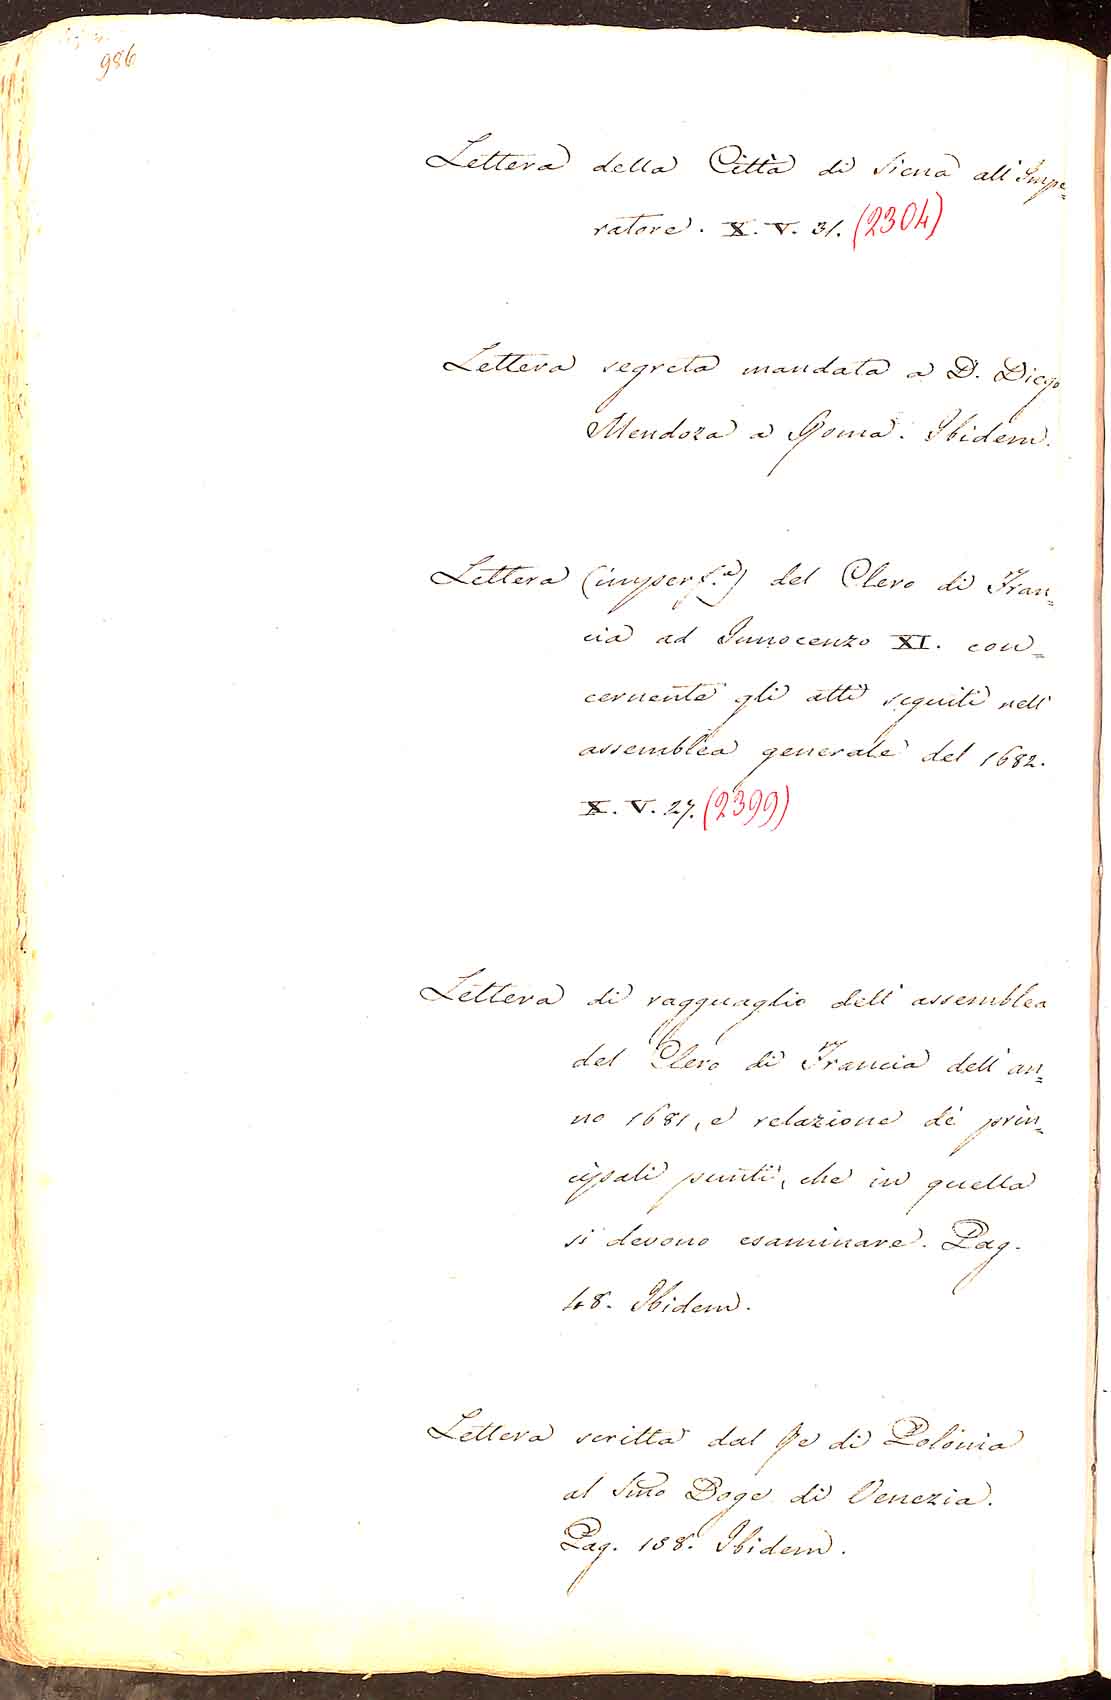 986
Lettera della Città di Siena all'Impe=
ratore. X. V. 31. (2304)
Lettera segreta mandata a D. Diego
Mendoza a Roma. Ibidem.
Lettera (imperf.a) del Clero di Fran=
cia ad Innocenzo XI. con=
cernente gli atti seguiti nell'
assemblea generale del 1682.
X. V. 27. (2399)
Lettera di ragguaglio dell'assemblea
del Clero di Francia dell'an=
no 1681, e relazione de' prin=
cipali punti, che in quella
si devono esaminare. Pag.
48. Ibidem.
Lettera scritta dal Re di Polonia
al Smo Doge di Venezia.
Pag. 158. Ibidem.